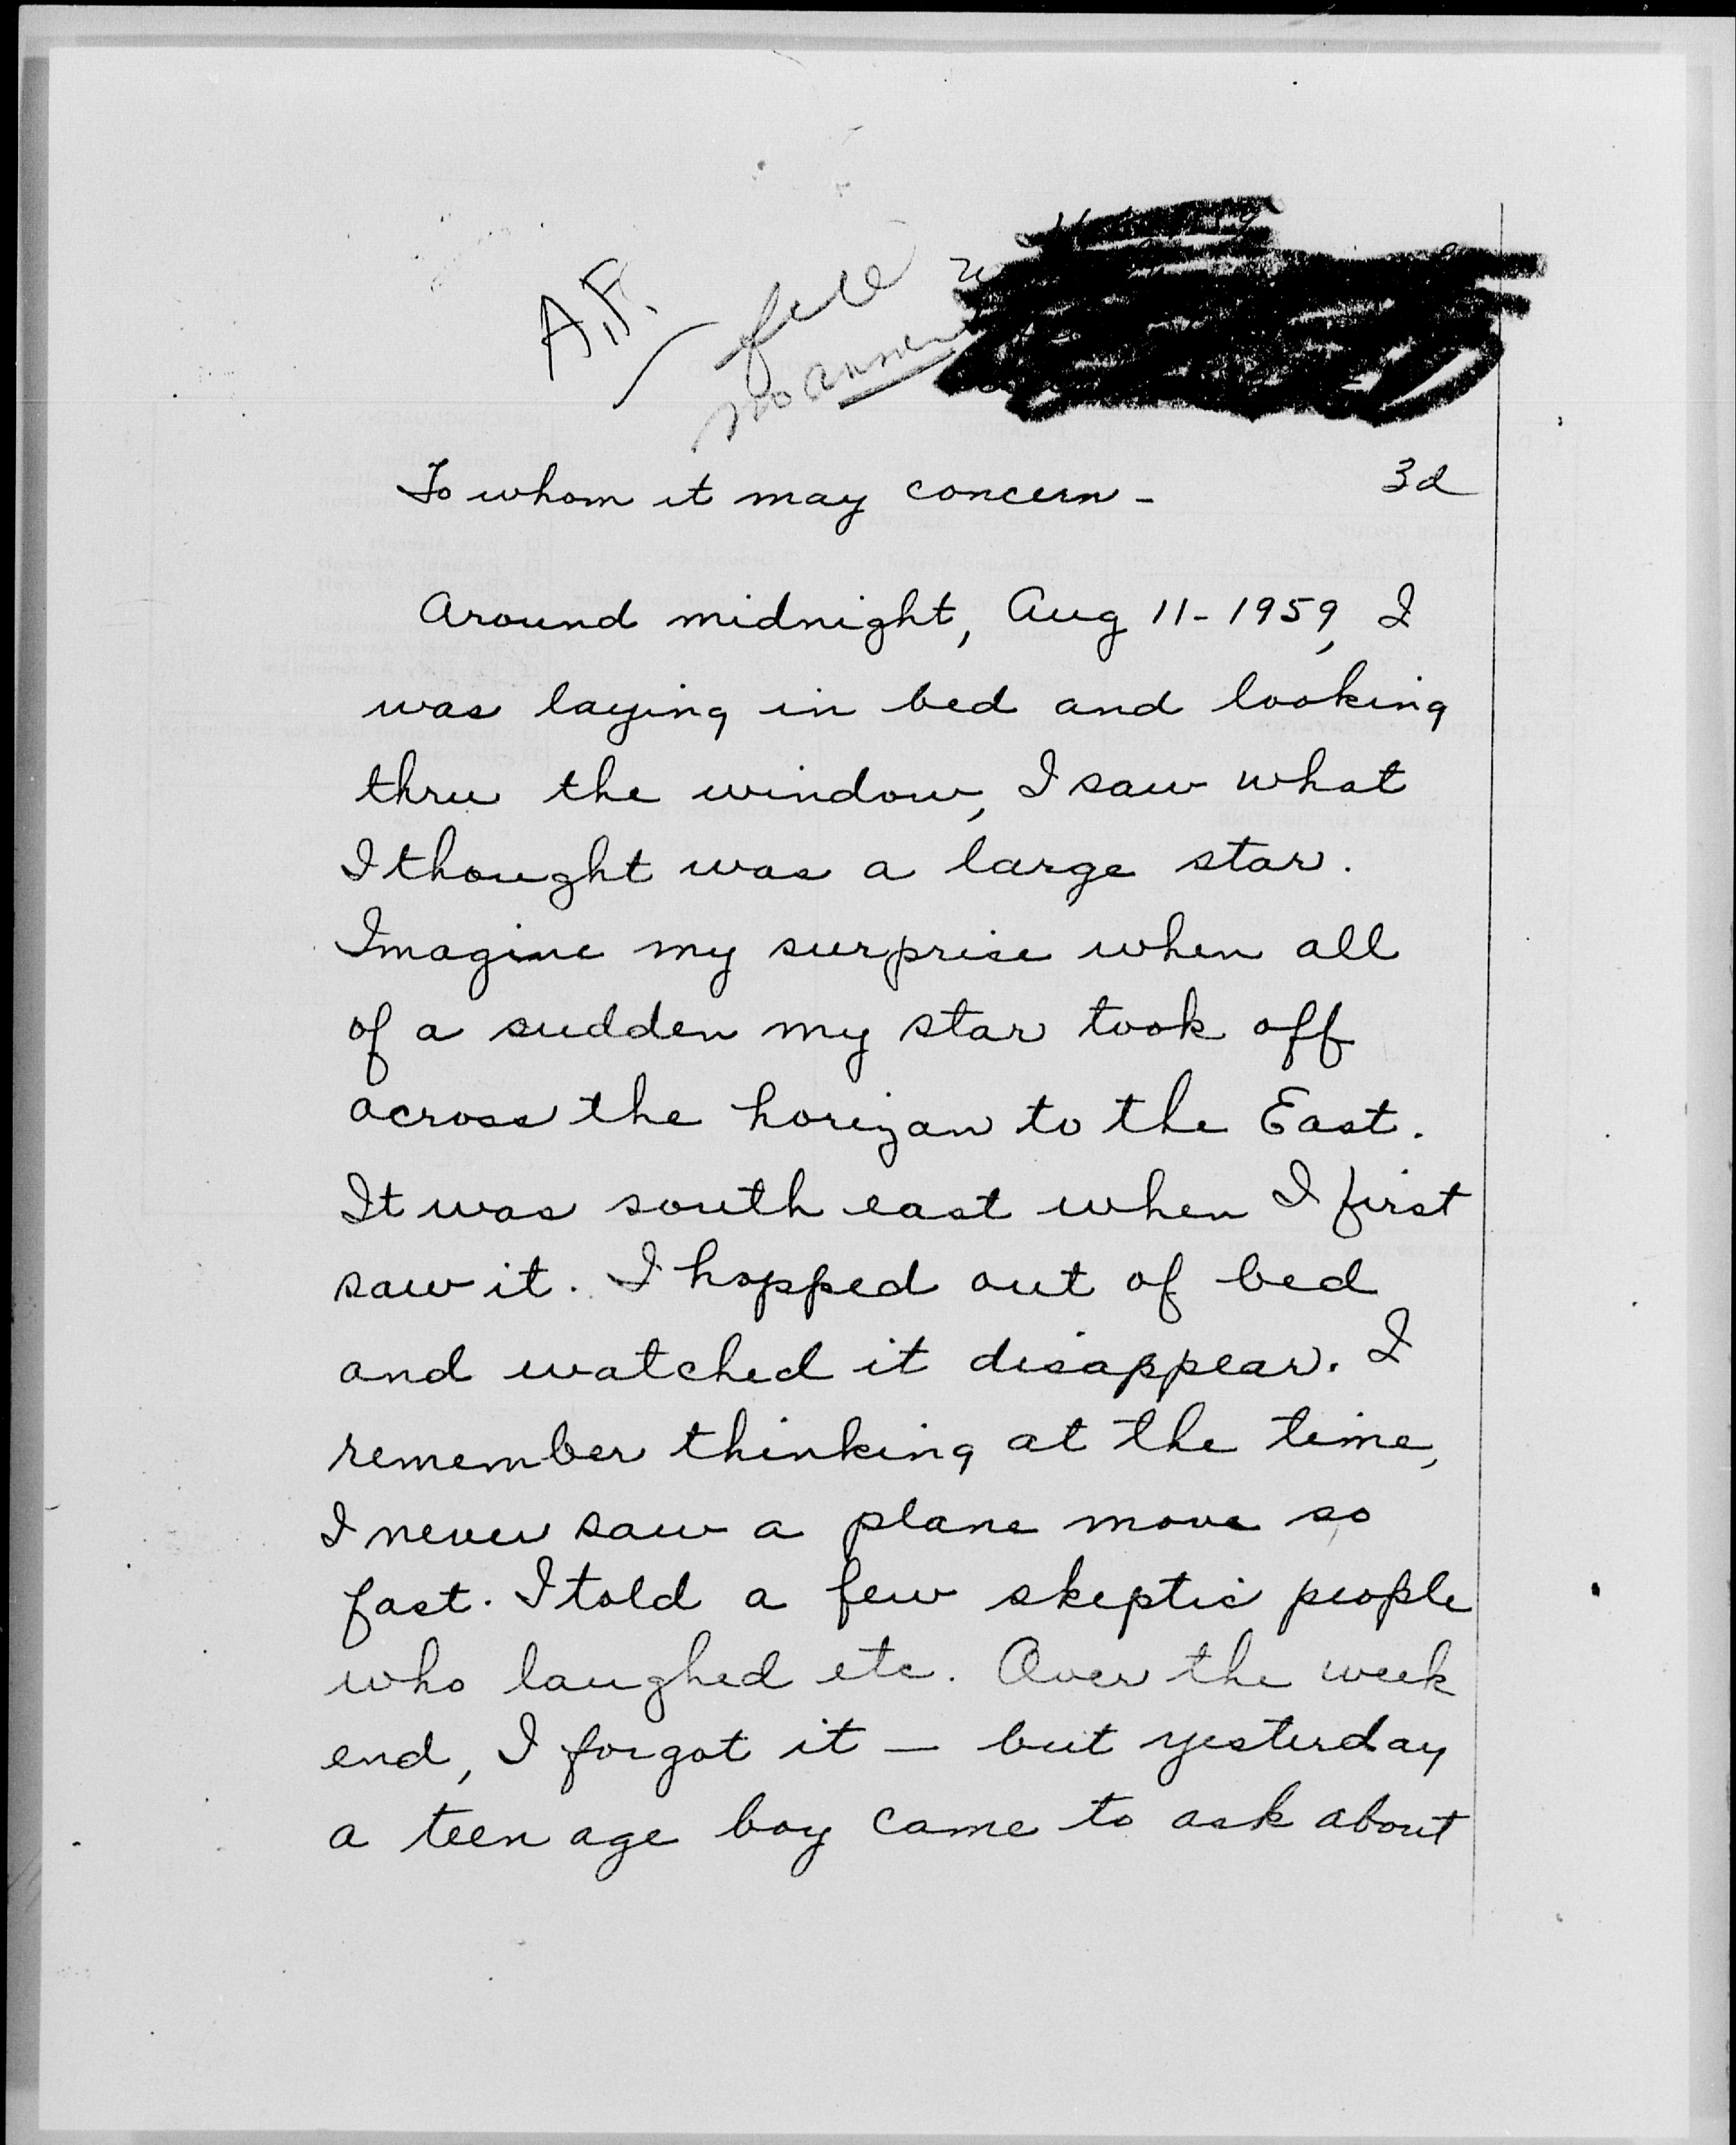 A.F.
file
no answer
To whom it may concern -
3d
Around midnight, Aug 11-1959, I
was laying in bed and looking
thru the window, I saw what
I thought was a large star.
Imagine my surprise when all
of a sudden my star took off
across the horizan to the East.
It was south east when I first
saw it. I hopped out of bed
and watched it disappear. I
remember thinking at the time,
I never saw a plane move so
fast. I told a few skeptic people
who laughed etc. Over the week
end, I forgot it — but yesterday
a teen age boy came to ask about